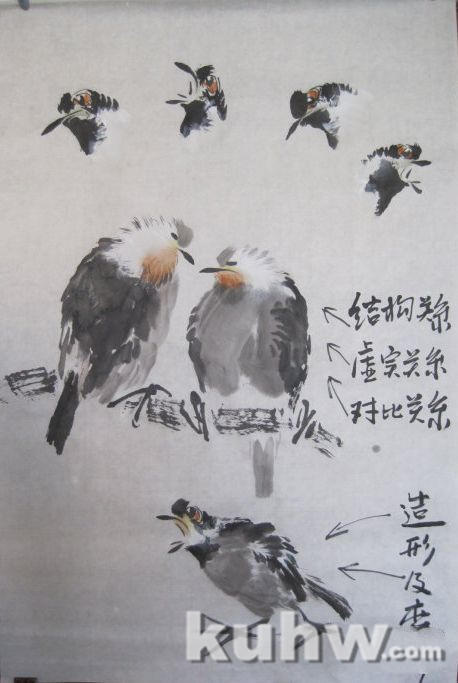 结构关系
虚实关系
对比关系
造形及
kuhw.com